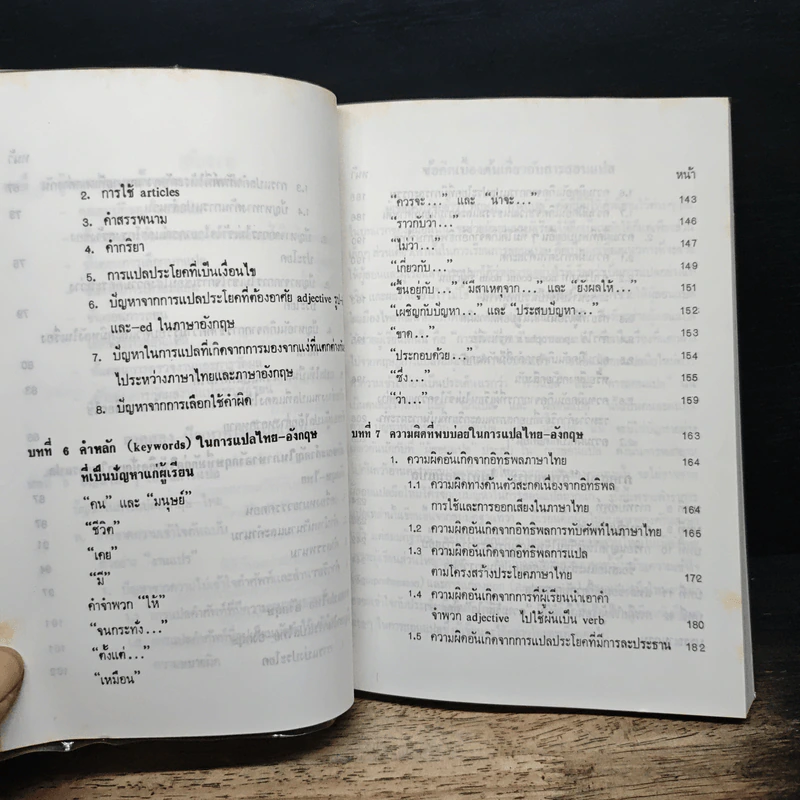 2. การใช้ articles
3. คำสรรพนาม
4. คำกริยา
5. การแปลประโยคที่เป็นเงื่อนไข
6. ปัญหาจากการแปลประโยคที่ต้องอาศัย adjective
และ-ed ในภาษาอังกฤษ
7. ปัญหาในการแปลที่เกิดจากการมองจากแง่ที่แตกต่าง
ไประหว่างภาษาไทยและภาษาอังกฤษ
8. ปัญหาจากการเลือกใช้คำผิด
บทที่ 6 คำหลัก (keywords) ในการแปลไทย-อังกฤษ
ที่เป็นปัญหาแก่ผู้เรียน
"คน" และ "มนุษย์"
"ชีวิต"
"เคย"
"มี"
คำจำพวก "ให้"
"จนกระทั่ง..."
"ตั้งแต่..."
"เหมือน"
หน้า
"ควรจะ..." และ "น่าจะ..." 143
"ราวกับว่า..." 146
"ไม่ว่า..." 147
"เกี่ยวกับ..." 149
"ขึ้นอยู่กับ..." "มีสาเหตุจาก..." และ "ยังผลให้..." 151
"เผชิญกับปัญหา..." และ "ประสบปัญหา..." 152
"ขาด..." 153
"ประกอบด้วย..." 154
"ซึ่ง..." 155
"ว่า..." 159
บทที่ 7 ความผิดที่พบบ่อยในการแปลไทย-อังกฤษ 163
1. ความผิดอันเกิดจากอิทธิพลภาษาไทย 164
1.1 ความผิดทางด้านตัวสะกดเนื่องจากอิทธิพล
การใช้และการออกเสียงในภาษาไทย 164
1.2 ความผิดอันเกิดจากอิทธิพลการทับศัพท์ในภาษาไทย 165
1.3 ความผิดอันเกิดจากอิทธิพลการแปล
ตามโครงสร้างประโยคภาษาไทย 172
1.4 ความผิดอันเกิดจากการที่ผู้เรียนนำเอาคำ
จำพวก adjective ไปใช้ผันเป็น verb 180
1.5 ความผิดอันเกิดจากการแปลประโยคที่มีการละประธาน 182